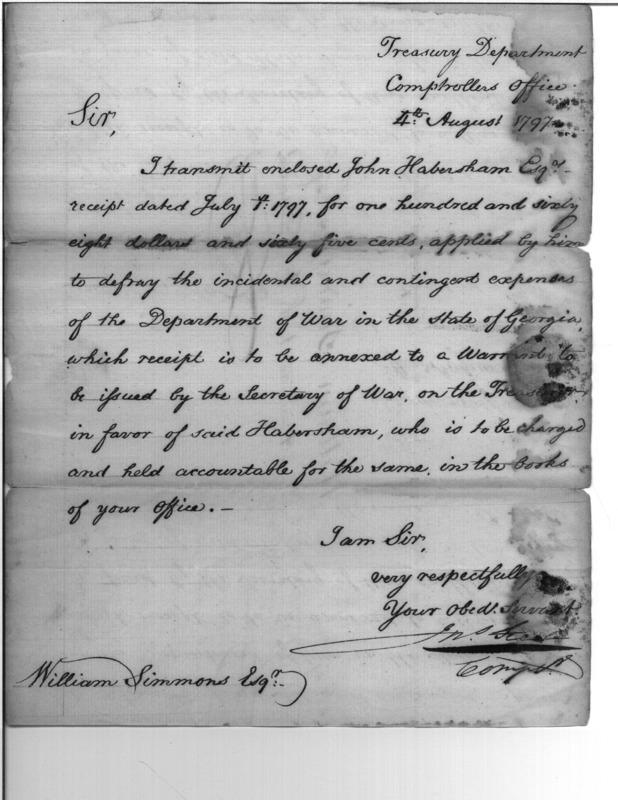 Treasury Department
Comptrollers Office
4th August 1797
Sir,
I transmit enclosed John Habersham Esqr.
receipt dated July 1797, for one hundred and sixty
eight dollars and sixty five cents, applied by him
to defray the incidental and contingent expenses
of the Department of War in the State of Georgia,
which receipt is to be annexed to a Warrant to
be issued by the Secretary of War, on the Treasurer,
in favor of said Habersham, who is to be charged
and held accountable for the same, in the books
of your Office. –
I am Sir,
very respectfully
Your Obedt. Servant
Jno. Steele
Comptr.
William Simmons Esqr.